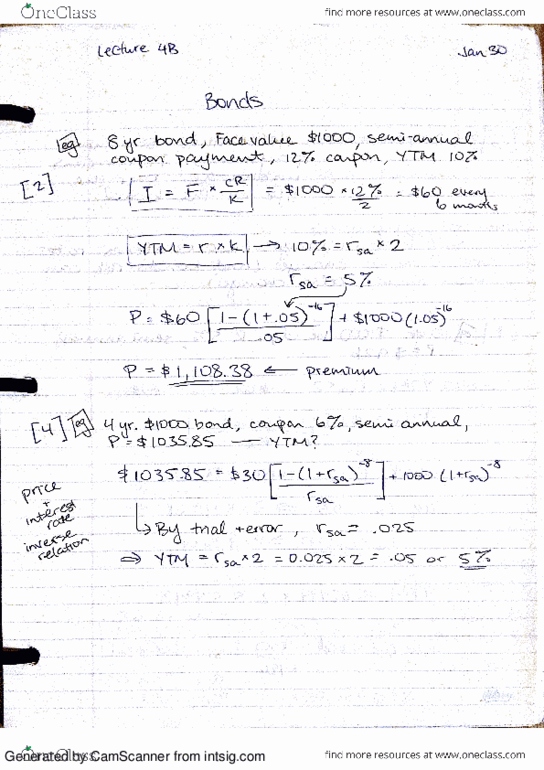 OneClass find more resources at www.oneclass.com
Lecture 4B Jan 30
Bonds
eg 8 yr bond, Face value $1000, semi-annual
coupon payment, 12% coupon, YTM 10%
[2] I = F × CR/K = $1000 × 12%/2 = $60 every 6 months
YTM = r × K → 10% = r_sa × 2
r_sa = 5%
P = $60 [1-(1+.05)^-16 / .05] + $1000 (1.05)^-16
P = $1,108.38 ← premium
[4] eg 4 yr. $1000 bond, coupon 6%, semi annual,
P = $1035.85 — YTM?
$1035.85 = $30 [1-(1+r_sa)^-8 / r_sa] + 1000 (1+r_sa)^-8
price
+
interest
rate
inverse
relation
↳ By trial + error, r_sa = .025
⇒ YTM = r_sa × 2 = 0.025 × 2 = .05 or 5%
Generated by CamScanner from intsig.com
OneClass find more resources at www.oneclass.com